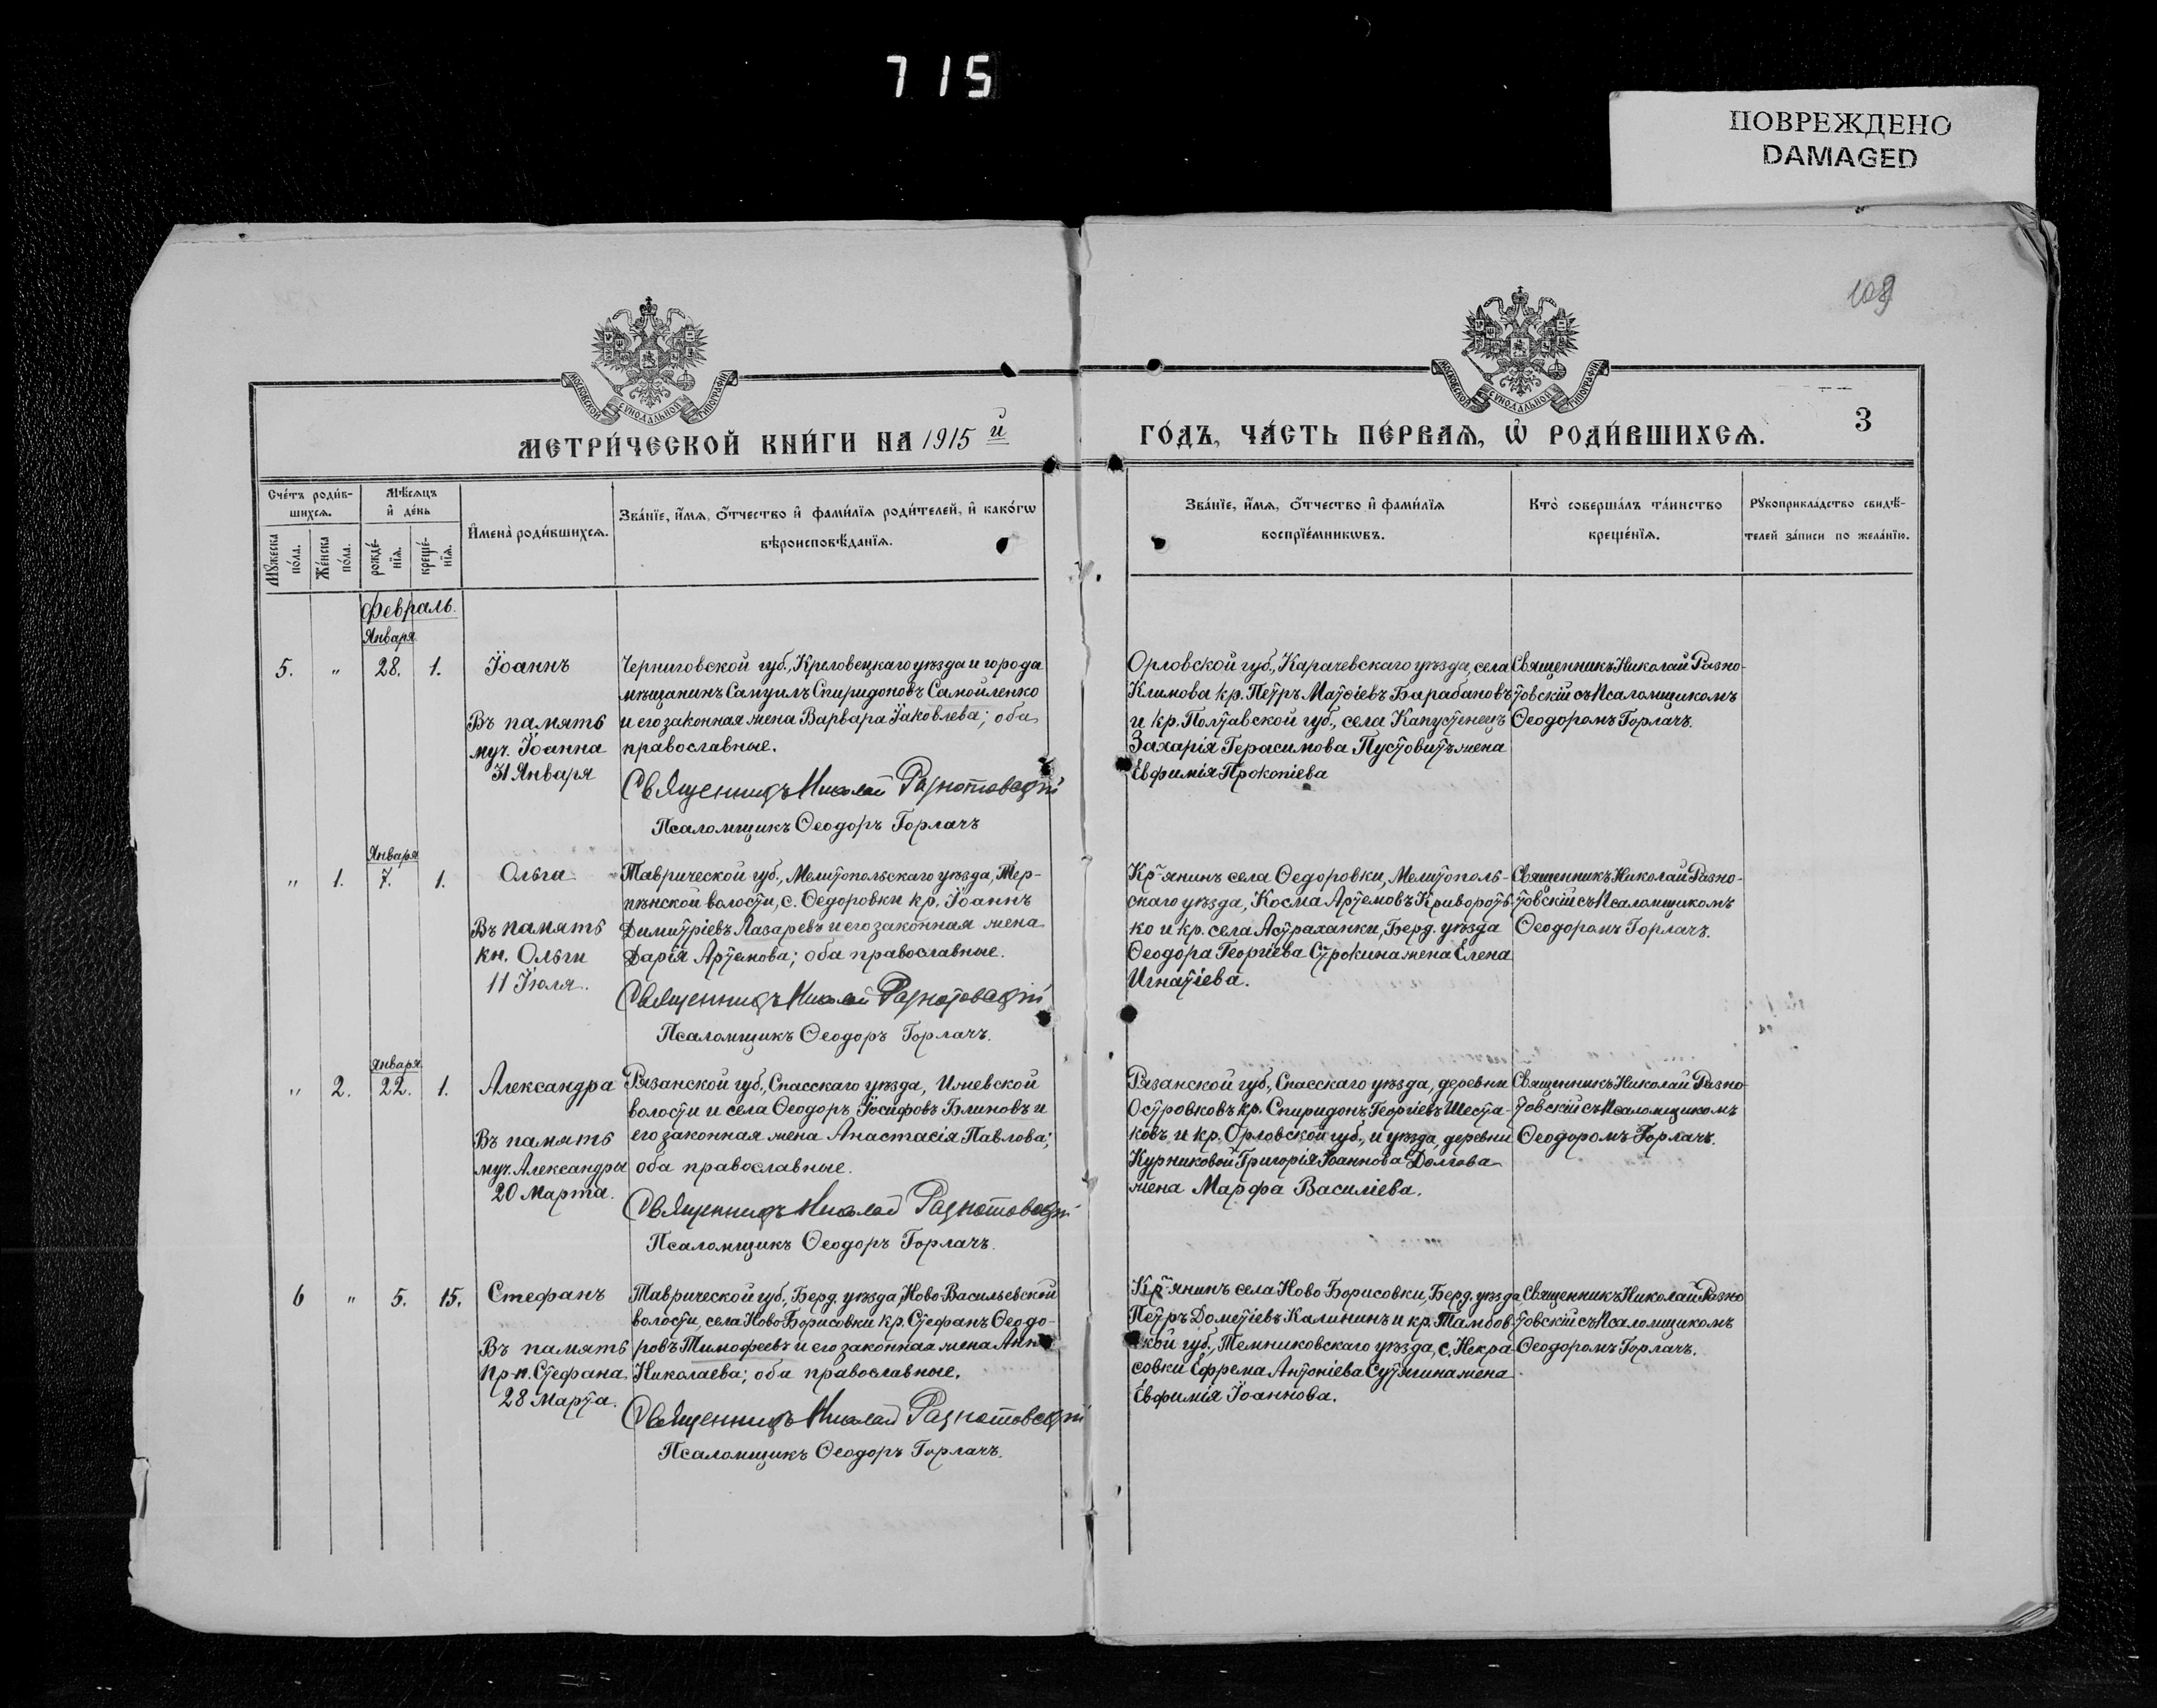 715
ПОВРЕЖДЕНО
DAMAGED
109
МОСКОВСКОЙ СѴНОДАЛЬНОЙ ТИПОГРАФІИ
МОСКОВСКОЙ СѴНОДАЛЬНОЙ ТИПОГРАФІИ
МЕТРИ́ЧЕСКОЙ КНИ́ГИ НА 1915 й
ГО́ДЪ, ЧА́СТЬ ПЕ́РВАѦ, Ѡ҆ РОДИ́ВШИХСѦ.
3
Сче́тъ роди́в-
шихсѧ.
Мꙋ́жеска по́ла.
Же́нска по́ла.
Мѣ́сѧцъ и҆ де́нь
рожде́-
нїѧ.
креще́-
нїѧ.
И҆мена̀ роди́вшихсѧ.
Зва́нїе, и҆́мѧ, ѻ҆́тчество и҆ фами́лїѧ роди́телей, и҆ како́гѡ
вѣроисповѣ́данїѧ.
Зва́нїе, и҆́мѧ, ѻ҆́тчество и҆ фами́лїѧ
воспрїе́мникѡвъ.
Кто̀ соверша́лъ та́инство
креще́нїѧ.
Рꙋкоприкла́дство свидѣ́-
телей за́писи по жела́нїю.
Февраль.
Января
5. " 28. 1. Іоаннъ
Въ память
муч. Іоанна
31 Января
Черниговской губ., Кролевецкаго уѣзда и города
мѣщанинъ Самуилъ Спиридоновъ Самойленко
и его законная жена Варвара Іаковлева; оба
православные.
Священникъ Николай Разнотовскій
Псаломщикъ Ѳеодоръ Горлачъ
Орловской губ., Карачевскаго уѣзда, села
Климова кр. Петръ Матѳіевъ Барабановъ
и кр. Полтавской губ., села Капустенецъ
Захарія Герасимова Пустовитъ жена
Евфимія Прокопіева
Священникъ Николай Разно-
товскій съ Псаломщикомъ
Ѳеодоромъ Горлачъ.
Января
" 1. 7. 1. Ольга
Въ память
кн. Ольги
11 Іюля.
Таврической губ., Мелитопольскаго уѣзда, Тер-
пѣнской волости, с. Ѳедоровки кр. Іоаннъ
Димитріевъ Лазаревъ и его законная жена
Дарія Артемова; оба православные.
Священникъ Николай Разнотовскій
Псаломщикъ Ѳеодоръ Горлачъ.
Кр-янинъ села Ѳедоровки, Мелитополь-
скаго уѣзда, Косма Артемовъ Криворотъ-
ко и кр. села Астраханки, Берд. уѣзда
Ѳеодора Георгіева Строкина жена Елена
Игнатіева.
Священникъ Николай Разно-
товскій съ Псаломщикомъ
Ѳеодоромъ Горлачъ.
Января
" 2. 22. 1. Александра
Въ память
муч. Александры
20 Марта.
Рязанской губ., Спасскаго уѣзда, Ижевской
волости и села Ѳеодоръ Іосифовъ Блиновъ и
его законная жена Анастасія Павлова;
оба православные.
Священникъ Николай Разнотовскій
Псаломщикъ Ѳеодоръ Горлачъ.
Рязанской губ., Спасскаго уѣзда, деревни
Островковъ кр. Спиридонъ Георгіевъ Шеста-
ковъ и кр. Орловской губ., и уѣзда, деревни
Курниковой Григорія Іоаннова Долгова
жена Марфа Василіева.
Священникъ Николай Разно-
товскій съ Псаломщикомъ
Ѳеодоромъ Горлачъ.
6 " 5. 15. Стефанъ
Въ память
пр-п. Стефана
28 Марта.
Таврической губ., Берд. уѣзда, Ново-Васильевской
волости, села Ново Борисовки кр. Стефанъ Ѳеодо-
ровъ Тимофеевъ и его законная жена Анна
Николаева; оба православные.
Священникъ Николай Разнотовскій
Псаломщикъ Ѳеодоръ Горлачъ.
Кр-янинъ села Ново Борисовки, Берд. уѣзда
Петръ Дометіевъ Калининъ и кр. Тамбов-
ской губ., Темниковскаго уѣзда, с. Некра-
совки Ефрема Антоніева Сутягина жена
Евфимія Іоаннова.
Священникъ Николай Разно
товскій съ Псаломщикомъ
Ѳеодоромъ Горлачъ.